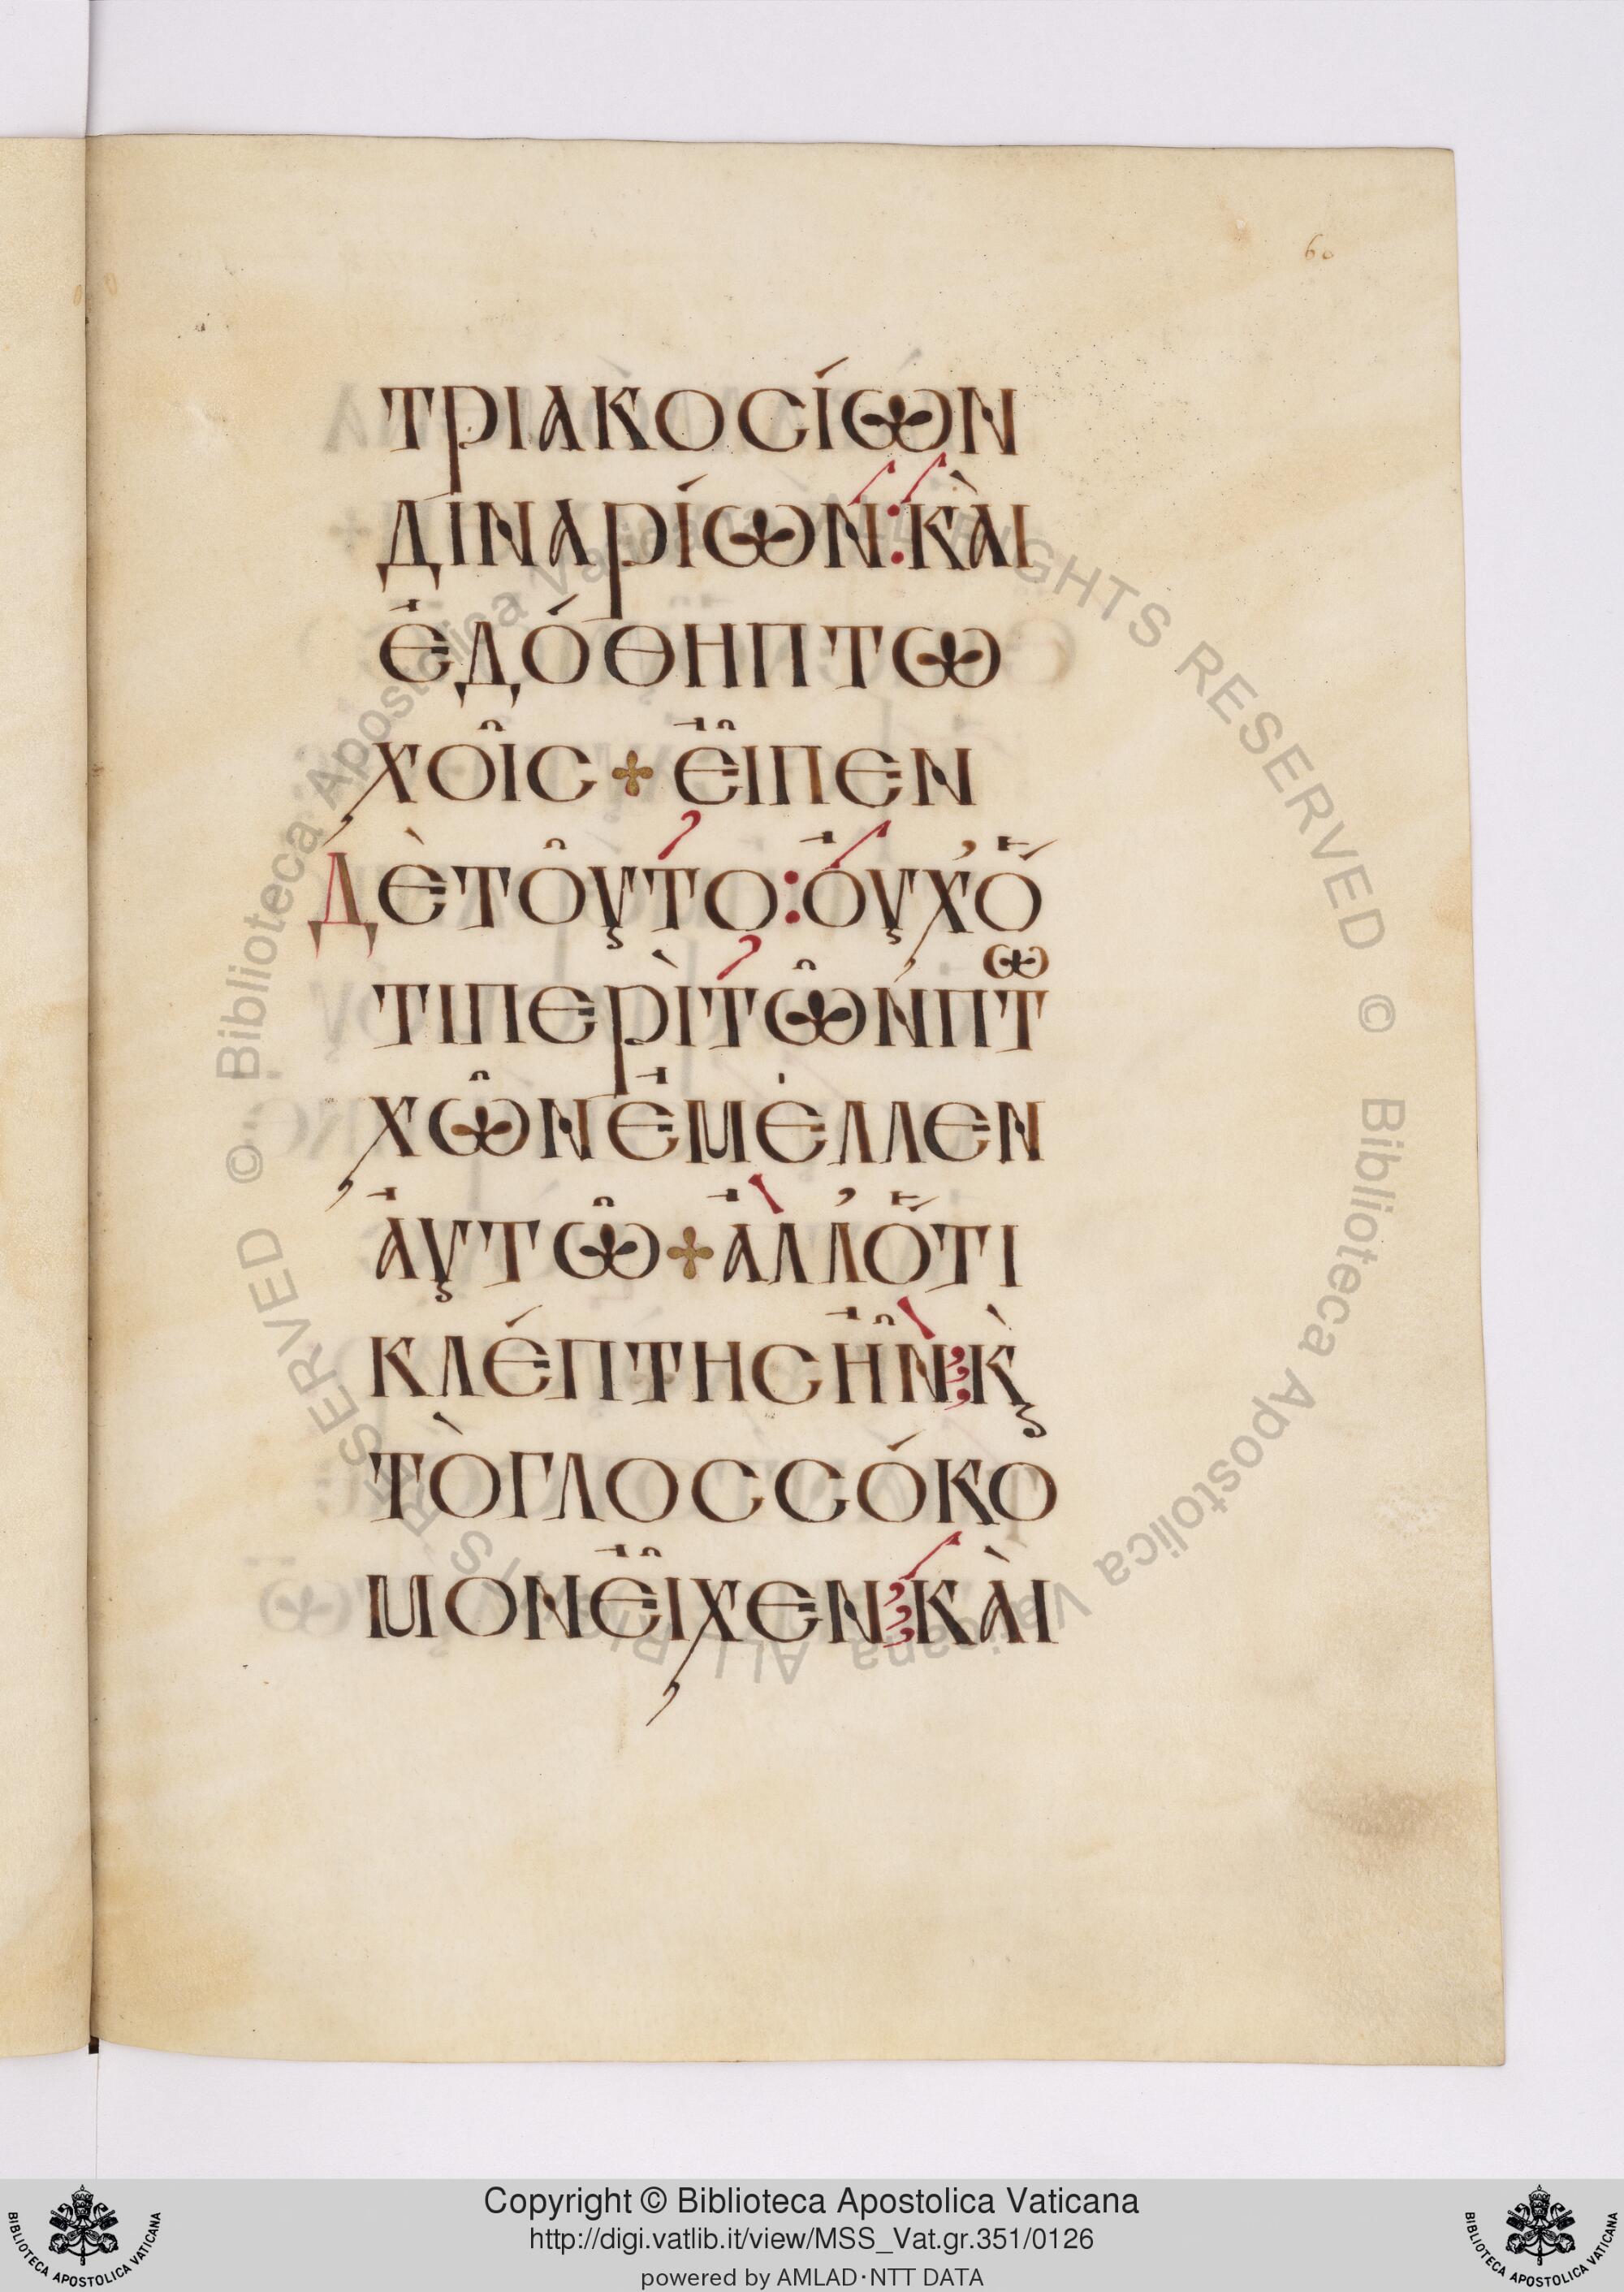 60
ΤΡΙΑΚΟCΊѠΝ
ΔΙΝΑΡΊѠΝ:ΚᾺΙ
ἘΔΌΘΗΠΤѠ
ΧΟῖC + ΕἾΠΕΝ
ΔῈΤΟῦΤΟ:ὀΥΧ᾽Ὅ
ΤΙΠΕΡῚΤῶΝΠΤѠ
ΧῶΝἘΜΕΛΛΕΝ
ἈΥΤῶ + ἈΛΛ᾽ὍΤΙ
ΚΛΈΠΤΗCἮΝ:Κ̀ϛ
ΤῸΓΛΟCCΌΚΟ
ΜΟΝΕἾΧΕΝ:ΚᾺΙ
© Biblioteca Apostolica Vaticana ALL RIGHTS RESERVED © Biblioteca Apostolica Vaticana ALL RIGHTS RESERVED
BIBLIOTECA APOSTOLICA VATICANA
Copyright © Biblioteca Apostolica Vaticana
http://digi.vatlib.it/view/MSS_Vat.gr.351/0126
powered by AMLAD·NTT DATA
BIBLIOTECA APOSTOLICA VATICANA